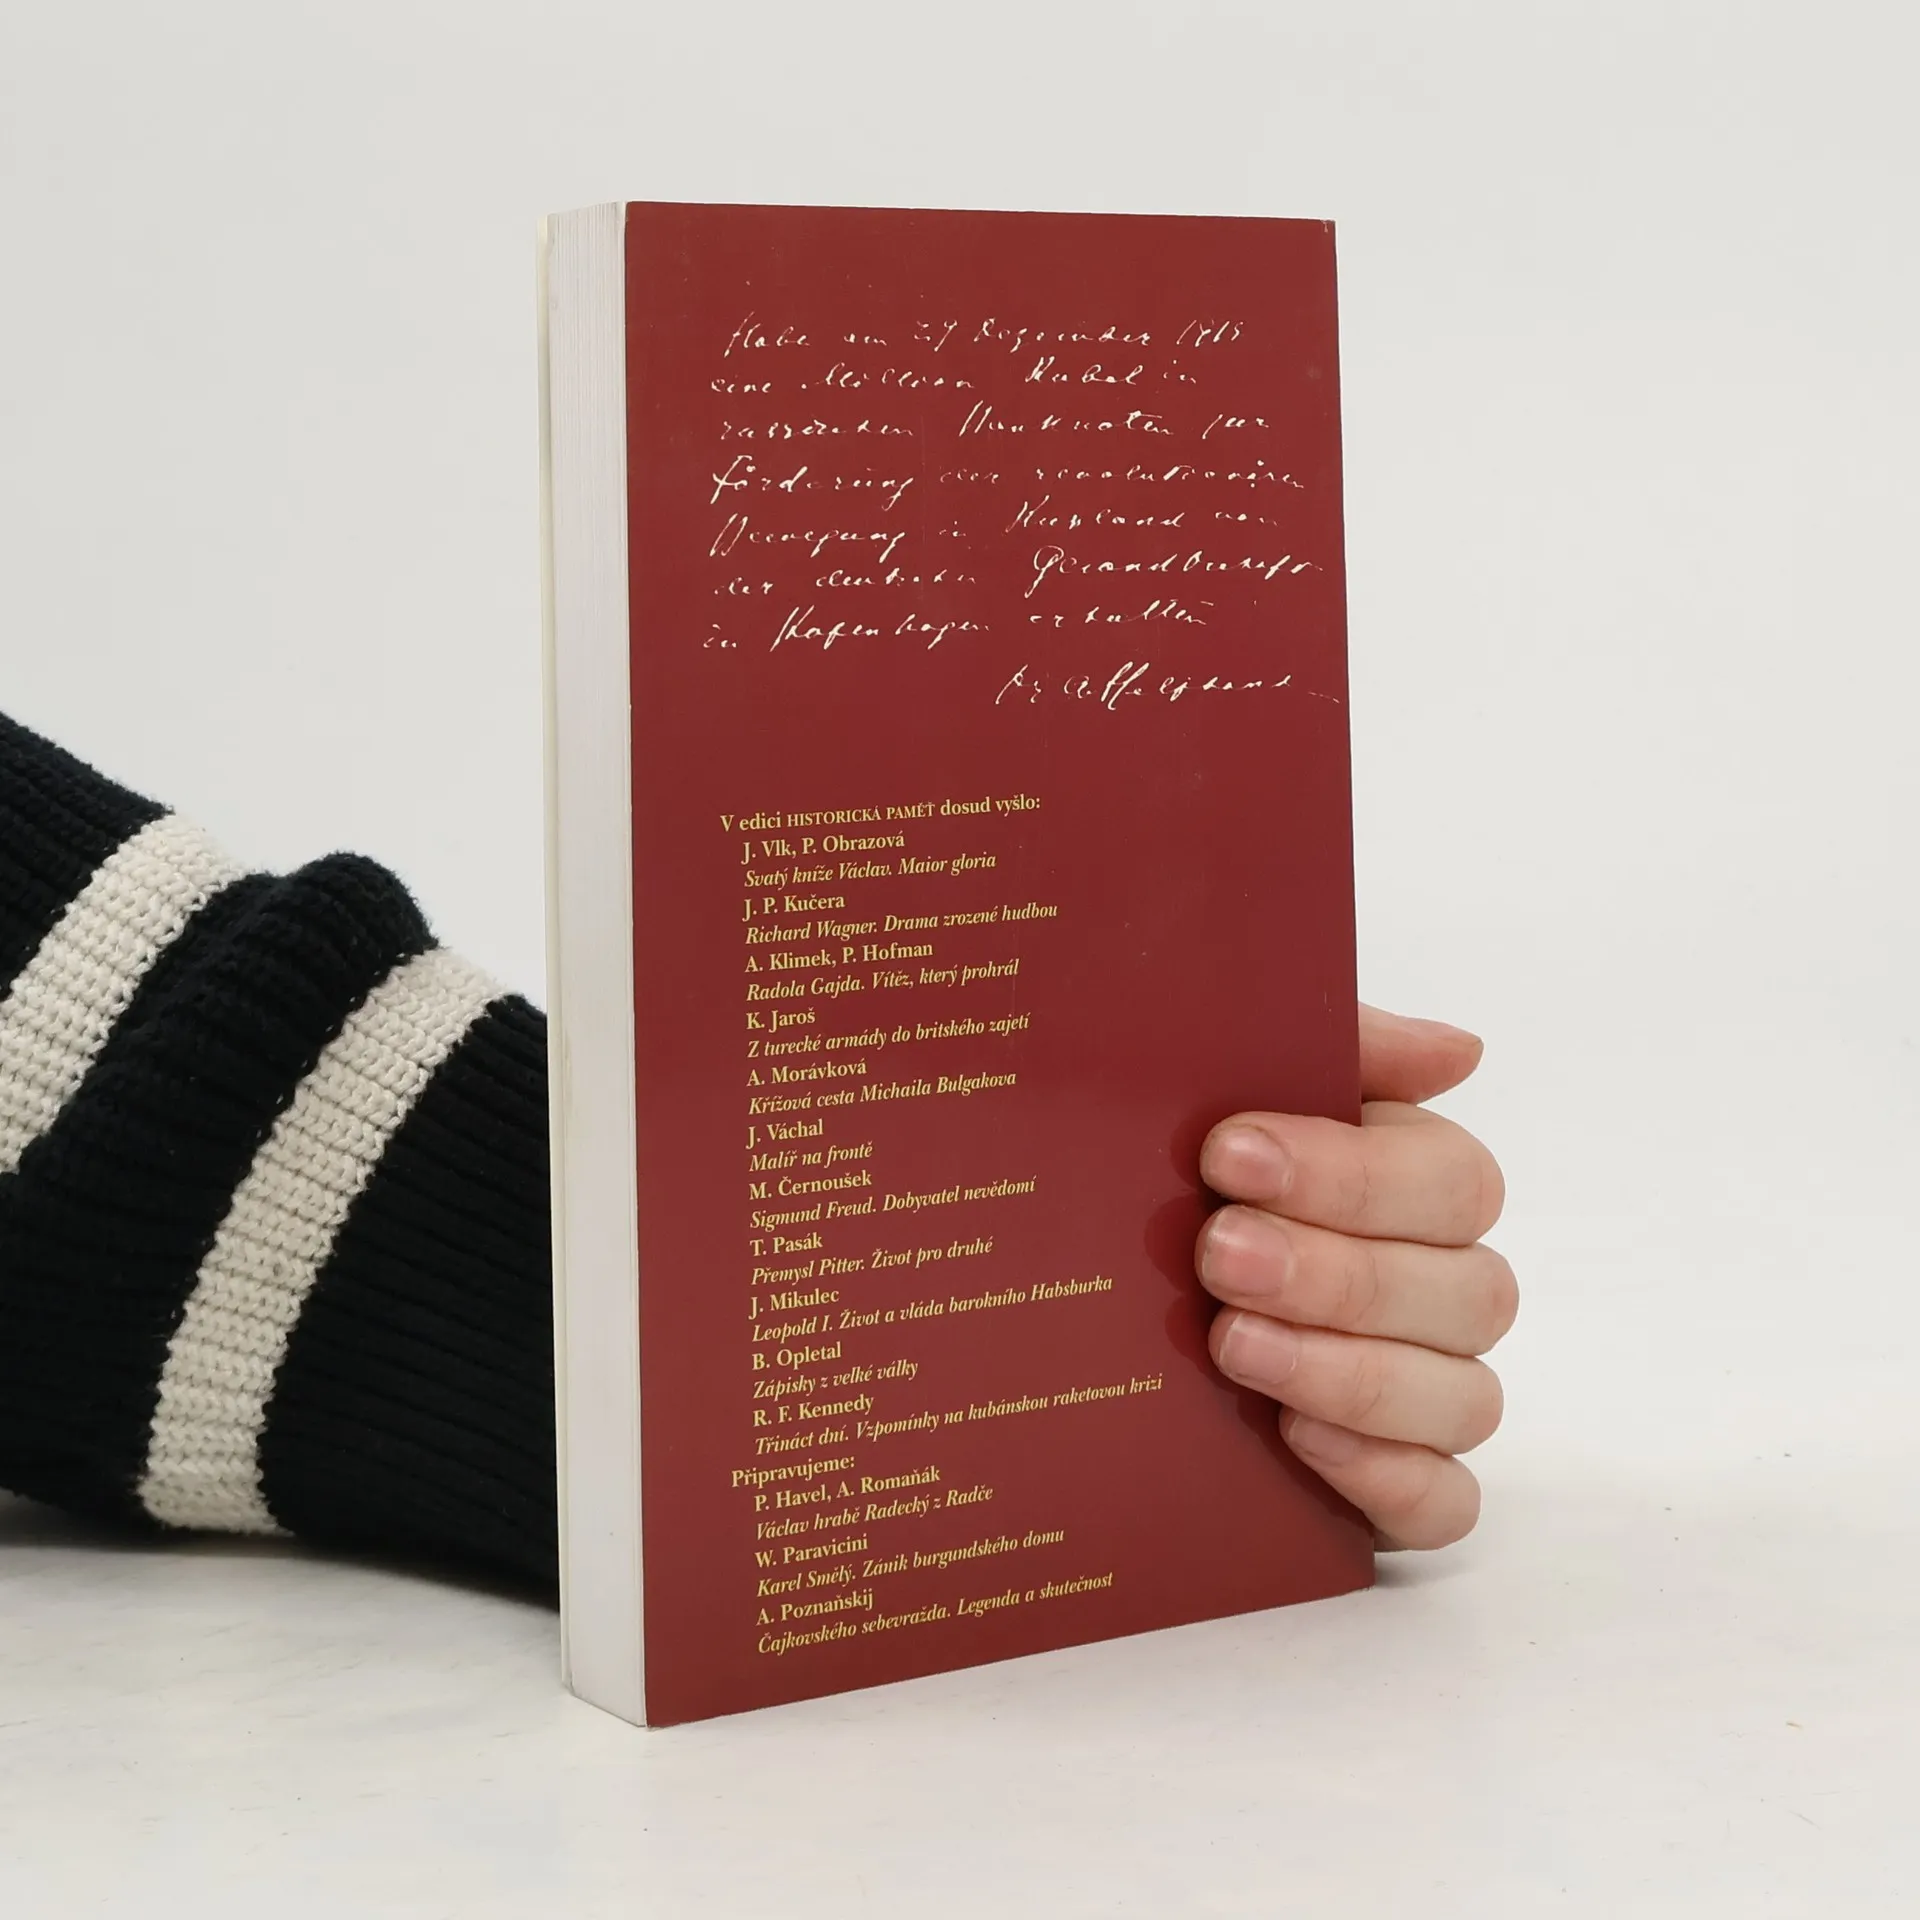 Habe am 29 Dezember 1915
eine Million Rubel in
russischen Banknoten zur
Förderung der revolutionären
Bewegung in Russland von
der deutschen Gesandtschaft
in Kopenhagen erhalten
Dr A Helphand
V edici HISTORICKÁ PAMĚŤ dosud vyšlo:
J. Vlk, P. Obrazová
Svatý kníže Václav. Maior gloria
J. P. Kučera
Richard Wagner. Drama zrozené hudbou
A. Klimek, P. Hofman
Radola Gajda. Vítěz, který prohrál
K. Jaroš
Z turecké armády do britského zajetí
A. Morávková
Křížová cesta Michaila Bulgakova
J. Váchal
Malíř na frontě
M. Černoušek
Sigmund Freud. Dobyvatel nevědomí
T. Pasák
Přemysl Pitter. Život pro druhé
J. Mikulec
Leopold I. Život a vláda barokního Habsburka
B. Opletal
Zápisky z velké války
R. F. Kennedy
Třináct dní. Vzpomínky na kubánskou raketovou krizi
Připravujeme:
P. Havel, A. Romaňák
Václav hrabě Radecký z Radče
W. Paravicini
Karel Smělý. Zánik burgundského domu
A. Poznaňskij
Čajkovského sebevražda. Legenda a skutečnost